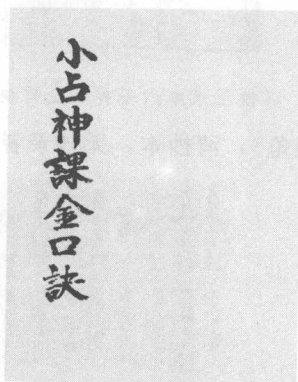 小占神課金口訣